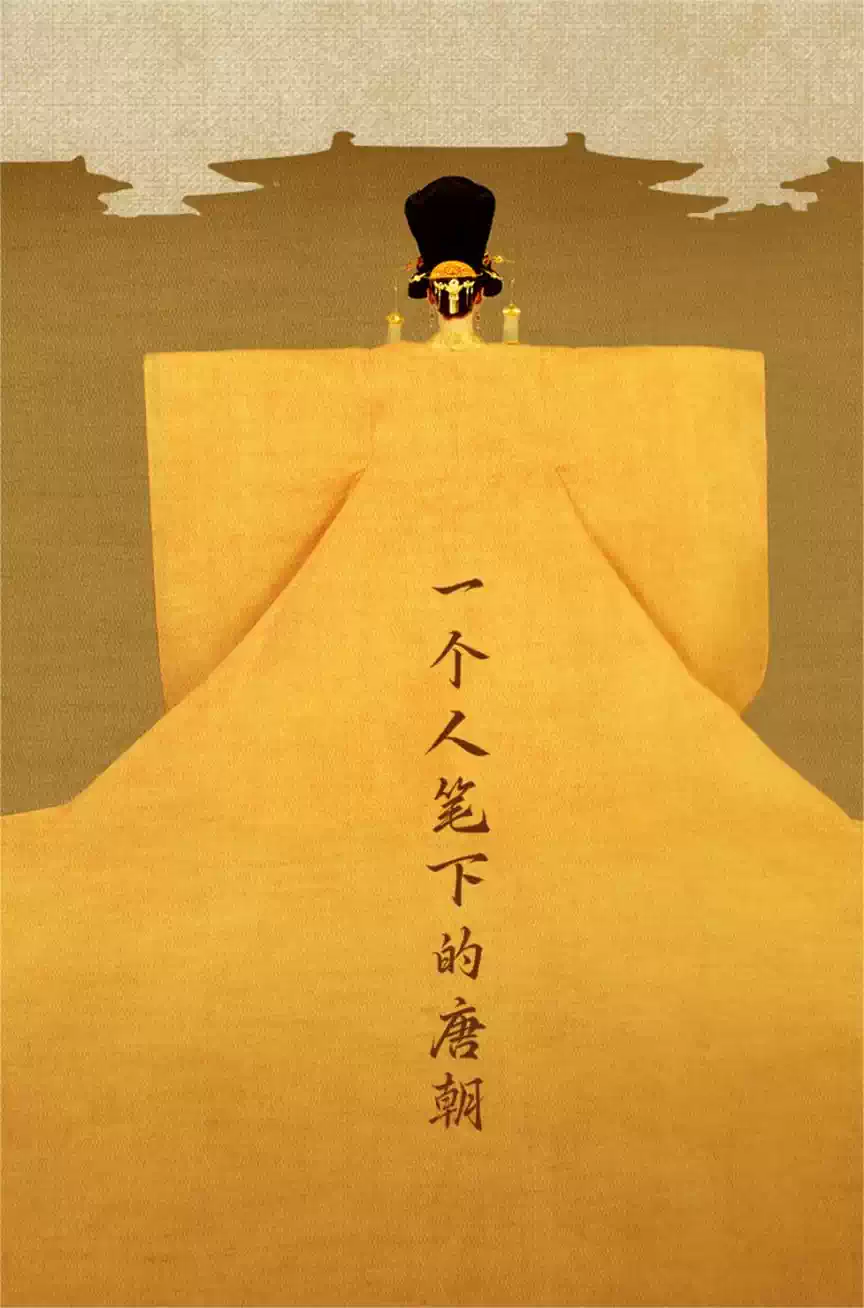 一个人笔下的唐朝